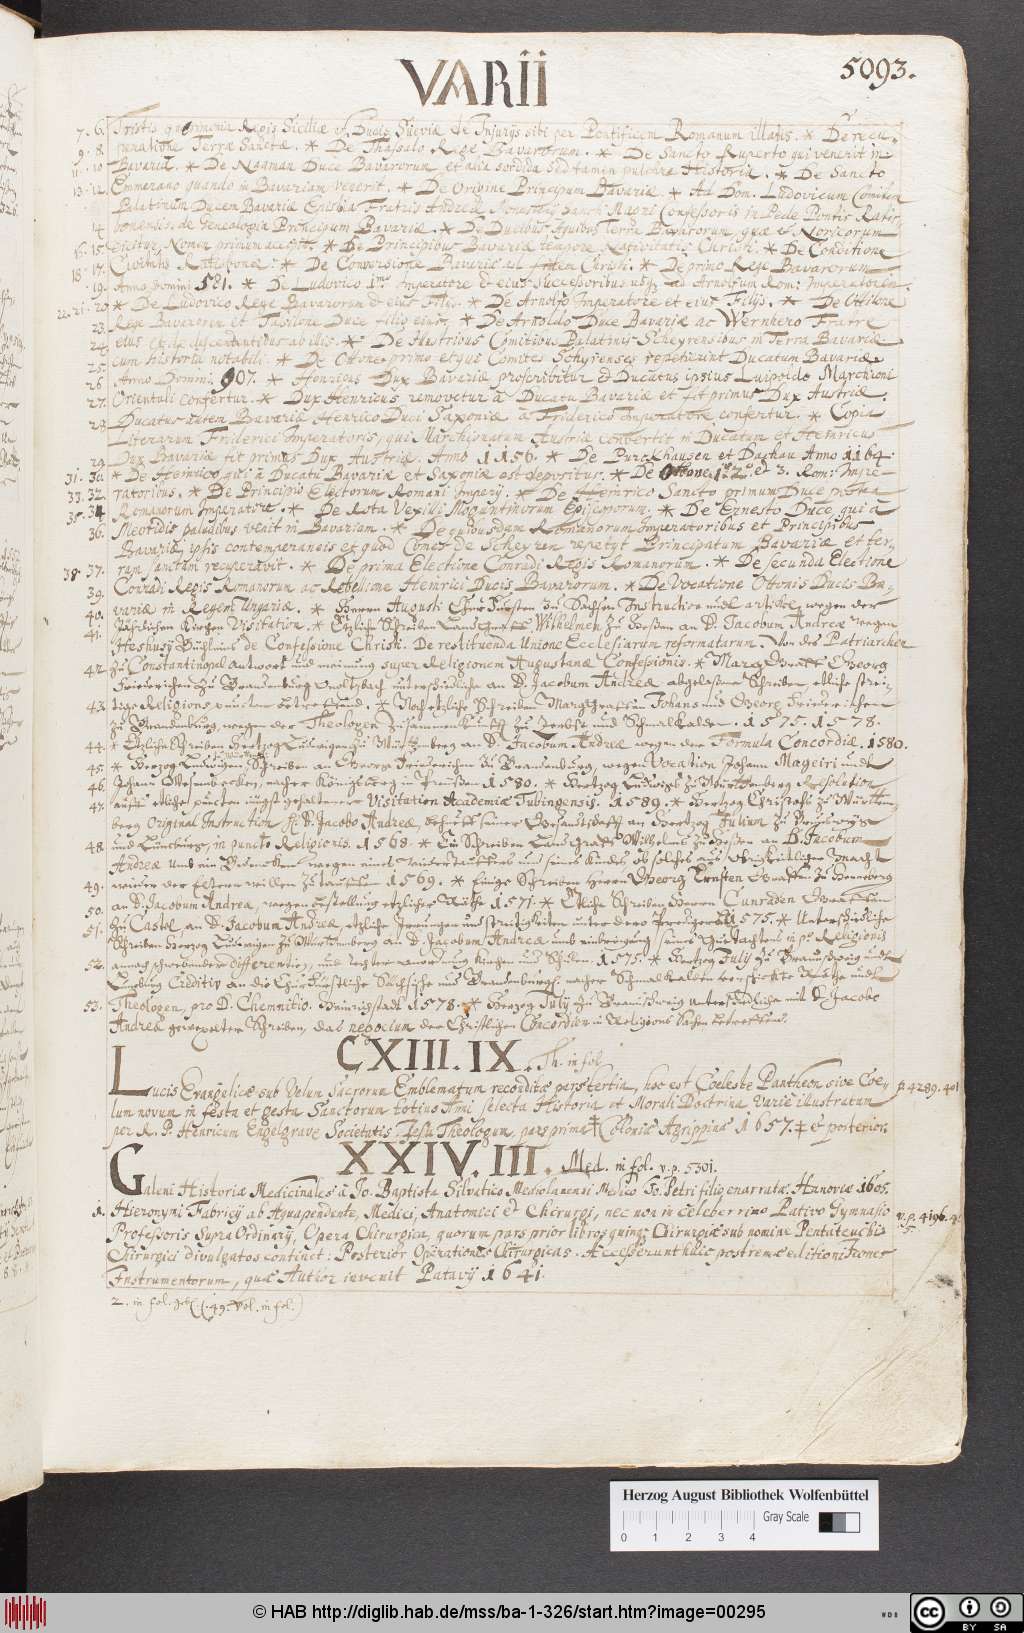 VARII
5093.
7. 6. Tristis querimonia Regis Siciliæ et Ducis Sueviæ de Injurijs sibi per Pontificem Romanum illatis. * De recu-
9. 8. peratione Terræ Sanctæ. * De Thassalo Rege Bavarorum. * De Sancto Ruperto qui venerit in
11. 10 Bavariam. * De Duce Bavarorum et alia sordida sed tamen pulchra Historia. * De Sancto
13. 12. Emmerano quando in Bavariam venerit. * De Origine Principum Bavariæ * Ad Dom. Ludovicum Comitem
Palatinum Ducem Bavariæ Epistola Fratris Andreæ Monasterij Sancti Magni Confessoris in Pede Pontis Ratis-
14. bonensis de Genealogia Principum Bavariæ. * De Ducibus Terra Bavarorum, quæ et Noricorum
16. 15. dicitur, Nomen primum accepit. * De Principibus Bavariæ tempore Nativitatis Christi. * De Conditione
18. 17. Civitatis Ratisbonæ. * De Conversione Bavariæ ad fidem Christi. * De primo Rege Bavarorum
19. Anno Domini 581. * De Ludovico 1mo Imperatore et eius successoribus usque ad Arnolfum Rom: Imperatorem.
22. 21. 20 * De Ludovico Rege Bavarorum et eius Filijs. * De Arnolfo Imperatore et eius Filijs. * De Ottilone
23. Rege Bavarorum et Tassilone Duce filio eius. * De Arnoldo Duce Bavariæ ac Wernhero Fratre
24. eius et de descendentibus ab illis. * De Illustribus Comitibus Palatinis Scheyrensibus in Terra Bavariæ
25. cum historia notabili. * De Ottone primo et qui Comites Schyrenses tenuerunt Ducatum Bavariæ
26. Anno Domini. 907. * Henricus Dux Bavariæ proscribitur et Ducatus ipsius Luipoldo Marchioni
27. Orientali confertur. * Dux Henricus removetur à Ducatu Bavariæ et fit primus Dux Austriæ.
28. Ducatus autem Bavariæ Henrico Duci Saxoniæ à Friderico Imperatore confertur. * Copia
Literarum Friderici Imperatoris, qui Marchionatum Austriæ convertit in Ducatum et Heinricus
29. Dux Bavariæ fit primus Dux Austriæ. Anno 1156. * De Burckhausen et Dachau Anno 1164.
31. 30. * De Heinrico, qui à Ducatu Bavariæ et Saxoniæ est depositus. * De Ottone, 1o 2o et 3. Rom: Impe-
33. 32. ratoribus. * De Principio Electorum Romani Imperij. * De Heinrico Sancto primum Duce postea
35. 34. Romanorum Imperatore. * De Rota Vexilli Moguntinorum Episcoporum. * De Ernesto Duce qui à
36. Meotidis paludibus venit in Bavariam. * De quibusdam Romanorum Imperatoribus et Principibus
Bavariæ ipsis contemporaneis et quod Comes de Scheyren repetijt Principatum Bavariæ et ter-
38. 37. ram sanctam recuperavit. * De prima Electione Conradi Regis Romanorum. * De secunda Electione
39. Conradi Regis Romanorum ac Rebellione Heinrici Ducis Bavarorum. * De Vocatione Ottonis Ducis Ba-
40. variæ in Regem Ungariæ. * Herrn Augusti Churfürsten zu Sachsen Instruction undt artickel, wegen der
41. Sächsischen Kirchen Visitation. * Etzliche Schreiben Landgraff Wilhelmen zu Hessen an D. Jacobum Andreæ wegen
Heshusij Büchleins de Confessione Christi. De restituenda Unione Ecclesiarum reformatarum. Von des Patriarchen
42. zu Constantinopel antwort und meinung super Religionem Augustanæ Confessionis. * Marg Graff Georg
Friederichen zu Brandenburg Onoltzbach unterschiedliche an D. Jacobum Andreæ abgelassene Schreiben, etliche strei-
43. tige Religions puncten betreffend. * Noch etzliche Schreiben Marggraffen Johans und Georg Friederichen
zu Brandenburg, wegen der Theologen Zusammenkunfft zu Zerbst und Schmalkalden. 1575. 1578.
44. * Etzliche Schreiben Hertzog Ludwigen zu Würtenberg an D. Jacobum Andreæ wegen der Formula Concordiæ. 1580.
45. * Herzog Ludwigen Schreiben an George Friederichen zu Brandenburg, wegen Vocation Johann Mageiri undt
46. Johann Wesenbecken, nacher Königsberg in Preußen 1580. * Hertzog Ludwigs zu Würtenberg Resolution
47. auff etliche puncten jüngst gehaltener Visitation Academiæ Tubingensis. 1589. * Hertzog Christoffs zu Würtem-
berg Original Instruction D. Jacobo Andreæ, behuff seiner Gesandtschafft an Hertzog Julium zu Braunschweig
48. und Lüneburg, in puncto Religionis. 1568. * Ein Schreiben Landgraff Wilhelms zu Hessen an D. Jacobum
Andreæ Und ein Bedencken wegen eines und seines Kindes, ob solches aus Obrigkeitlicher Macht
49. wieder der Eltern willen zu tauffen 1569. * Einige Schreiben Herrn Georg Ernsten Graffen zu Henneberg
50. an D. Jacobum Andreæ, wegen bestellung etzlicher Räthe 1571. * Etliche Schreiben Herrn Cunraden Graffen
51. zu Castel an D. Jacobum Andreæ, etzliche Irrungen und streitigkeiten unter dero Predigern 1575. * Unterschiedliche
Schreiben Herzog Ludwigen zu Würtenberg an D. Jacobum Andreæ und seines Gutachtens in po. Religionis
52. annoch schwebender differentien, und rechter anordnung Kirchen und Schulen. 1575. * Hertzog Julij zu Braunschweig und
Lüneburg Creditiv an die Churfürstliche Sächsische und Brandenburg. nacher Schmalkalden verschickte Räthe und
53. Theologen, pro D. Chemnitio. Heinrichstadt 1578. * Hertzog Julij zu Braunschweig Unterschiedliche mit D. Jacobo
Andreæ gewexelter Schreiben, das negotium der Christlichen Concordien in Religions Sachen betreffend.
CXIII. IX. Th. in fol
Lucis Evangelicæ sub Velum Sacrorum Emblematum reconditæ pars tertia, hoc est Coeleste Pantheon sive Coe- p. 4289. 401
lum novum in festa et gesta Sanctorum totius Anni selecta Historia et Morali Doctrina variè illustratum
per R. P. Henricum Engelgrave Societatis Jesu Theologum, pars prima ‡ Coloniæ Agrippinæ 1657. ‡ & posterior.
XXIV. III. Med. in fol. v. p. 5301.
Galeni Historiæ Medicinales à Jo. Baptista Silvatico Mediolanensi Medico Jo. Petri filio enarratæ. Hanoviæ 1605.
1. Hieronymi Fabricij ab Aquapendente, Medici, Anatomici et Chirurgi, nec non in celeberrimo Patavino Gymnasio v. p. 4196. 4.
Professoris Supra Ordinarij, Opera Chirurgica, quorum pars prior libros quinque Chirurgiæ sub nomine Pentateuchi
Chirurgici divulgatos continet: Posterior Operationes Chirurgicas. Accesserunt huic postremæ editioni Icones
Instrumentorum, quæ Author invenit Patavij 1641.
2. in fol. geb. (. 49. Vol. in fol.)
Herzog August Bibliothek Wolfenbüttel
0 1 2 3 4 Gray Scale
© HAB http://diglib.hab.de/mss/ba-1-326/start.htm?image=00295
WDB
cc BY SA